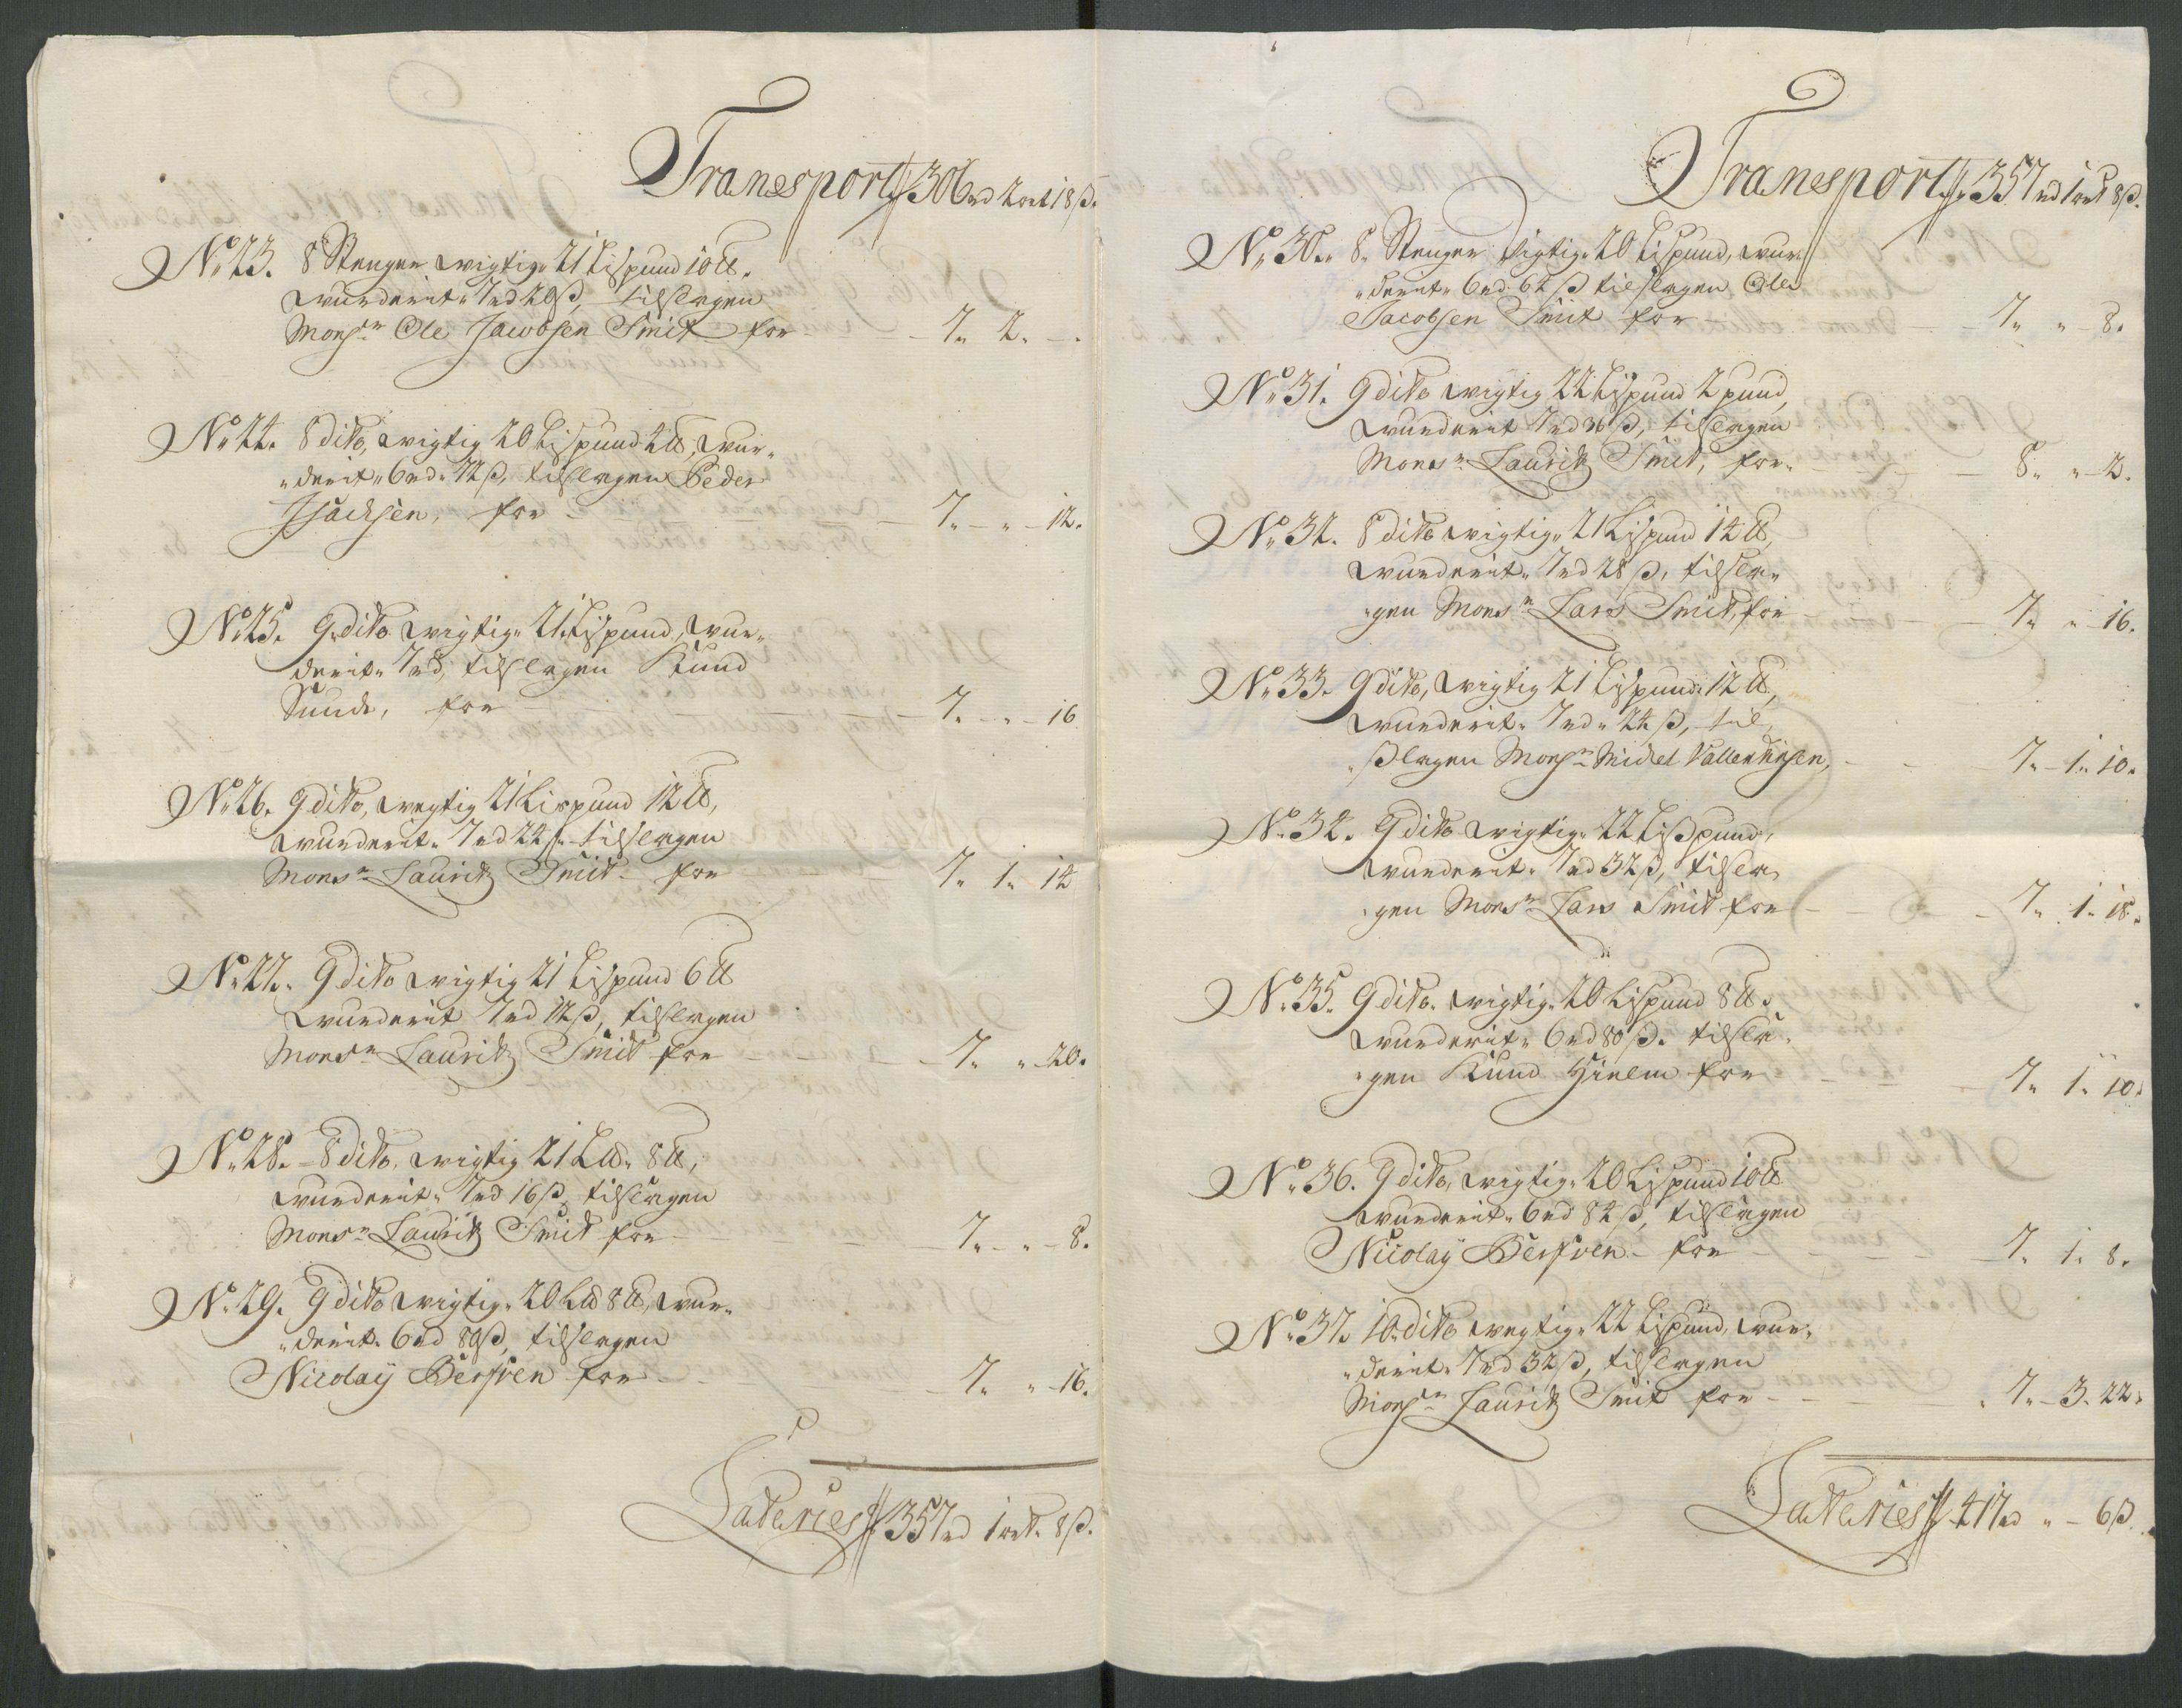 Transport// 306 rd 2 ort 18 ß.
No. 23. 8 Stenger wigtig 21 Lispund 10 ℔.
wurderit 7 rd 20 ß, tilslagen
Monsr Ole Jacobsen Smit for - 7. 2. -.
No. 24. 8 dito, wigtig 20 Lispund 4 ℔, wur-
derit 6 rd. 72 ß, tilslagen Peder
Isachsen, for - 7. - " - 12.
No. 25. 9 dito wigtig 21 Lispund, wur-
derit 7 rd, tilslagen Knud
Sunde, for - 7. - " - 16
No. 26. 9 dito, wegtig 21 Lispund 12 ℔,
wurderit 7 rd 24 ß tilslagen
Monsr Lauritz Smit for 7. 1. 14
No. 27. 9 dito wigtig 21 Lispund 6 ℔
wurderit 7 rd 12 ß, tilslagen
Monsr Lauritz Smit for - 7. " - 20.
No. 28. 8 dito, wigtig 21 L℔. 8 ℔,
wurderit 7 rd 16 ß, tilslagen
Monsr Lauritz Smit for - 7. - " - 8.
No. 29. 9 dito wigtig 20 L℔ 8 ℔, wur-
derit 6 rd 80 ß, tilslagen
Nicolaÿ Bersven for - 7. " - 16.
Lateries// 357 rd 1 ort. 8 ß.
Transport// 357 rd 1 ort 8 ß.
No. 30. 8 Stenger Vigtig 20 Lispund, wur-
derit 6 rd 64 ß tilslagen Ole
Jacobsen Smit for - 7. " - 8.
No. 31. 9 dito wigtig 22 Lispund 2 pund,
wurderit 7 rd 36 ß, tilslagen
Monsr Lauritz Smit, for - 8. " - 2.
No. 32. 8 dito wigtig 21 Lispund 14 ℔,
wurderit 7 rd 28 ß, tilsla-
gen Monsr Lars Smit, for - 7. " - 16.
No. 33. 9 dito, wigtig 21 Lispund 12 ℔,
wurderit 7 rd 24 ß, til-
slagen Monsr Michel Vallentinsen, - 7. - 1. 10.
No. 34. 9 dito wigtig 22 Lispund,
wurderit 7 rd 32 ß, tilsla-
gen Monsr Lars Smit for - 7. 1. 18.
No. 35. 9 dito. wigtig 20 Lispund 8 ℔.
wurderit 6 rd 80 ß. tilsla-
gen Knud for - 7. 1. 10.
No. 36. 9 dito, wigtig 20 Lispund 10 ℔
wurderit 6 rd 84 ß, tilslagen
Nicolaÿ Bersven - for - 7. 1. 8.
No. 37. 10 dito wegtig 22 Lispund, wur-
derit 7 rd 32 ß, tilslagen
Monsr Lauritz Smit for - 7. - 3. 22.
Lateries// 417 rd " - 6 ß.